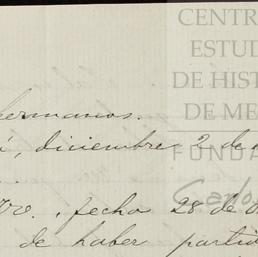 CENTR
ESTUD
DE HIST
DE ME
FUNDA
Carlo
hermanos.
, diciembre 2 de
, fecha 28 de
de haber partid